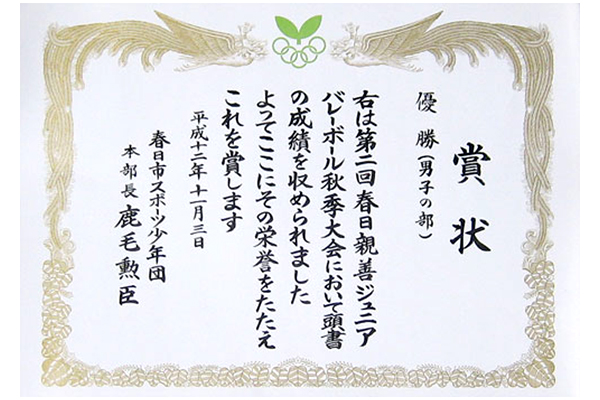 賞状
優勝(男子の部)
右は第二回春日親善ジュニア
バレーボール秋季大会において頭書
の成績を収められました
よってここにその栄誉をたたえ
これを賞します
平成十二年十一月三日
春日市スポーツ少年団
本部長 鹿毛勲臣